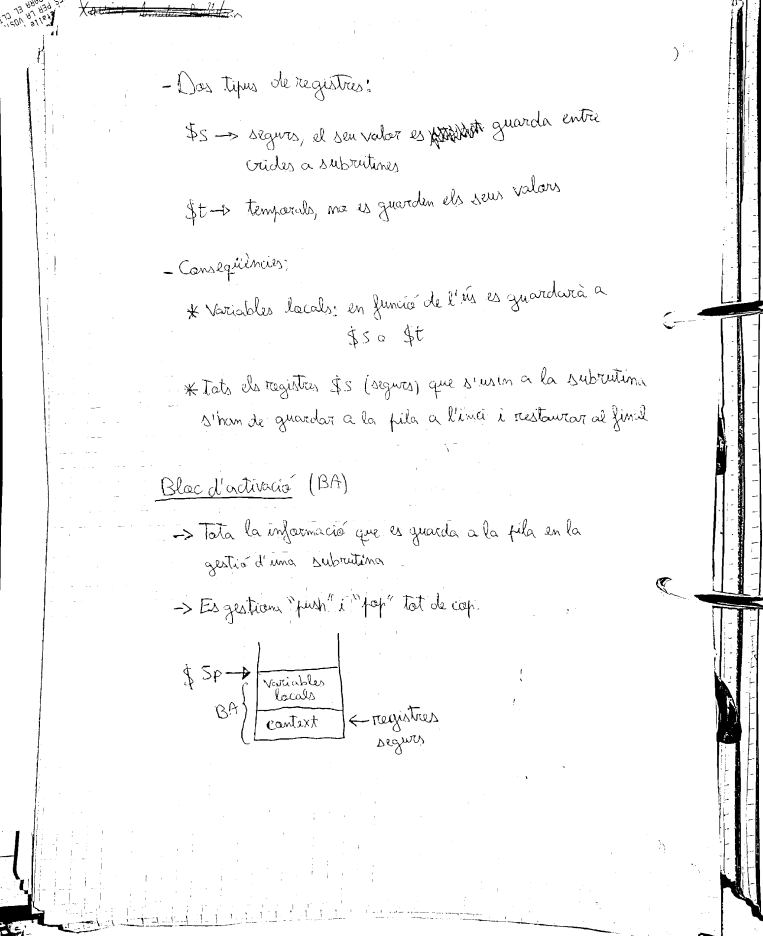 - Dos tipus de registres:
$s → segurs, el seu valor es guarda entre
crides a subrutines
$t → temporals, no es guarden els seus valors
- Conseqüències:
* Variables locals: en funció de l'ús es guardarà a
$s o $t
* Tots els registres $s (segurs) que s'usin a la subrutina
s'han de guardar a la pila a l'inici i restaurar al final
Bloc d'activació (BA)
→ Tota la informació que es guarda a la pila en la
gestió d'una subrutina.
→ Es gestiona "push" i "pop" tot de cop.
$ Sp →
variables
locals
BA
context
← registres
segurs